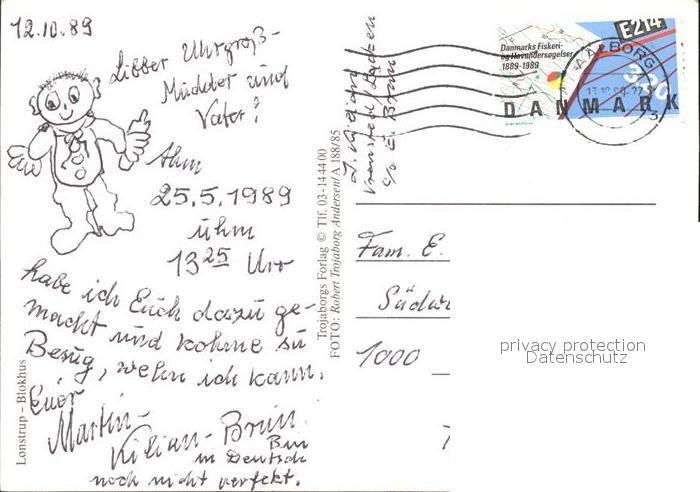 12.10.89
Libber Uhrgroß-
Müdder und
Vater!
Ahm
25.5.1989
ühm
13 25 Urr
habe ich Euch dazu ge-
macht und kohme su
Besug, wehn ich kann.
Euer
Martin-
Kilian-Brun.
Bin
in Deutsch
noch nicht perfekt.
Lonstrup - Blokhus
Trojaborgs Forlag © Tlf. 03-14 44 00
FOTO: Robert Trojaborg Andersen/A 188/85
c/o E. Brun
E214
Danmarks Fiskeri-
og Havundersøgelser
1889-1989
330
DANMARK
AALBORG
Fam. E.
Südw
1000
privacy protection
Datenschutz